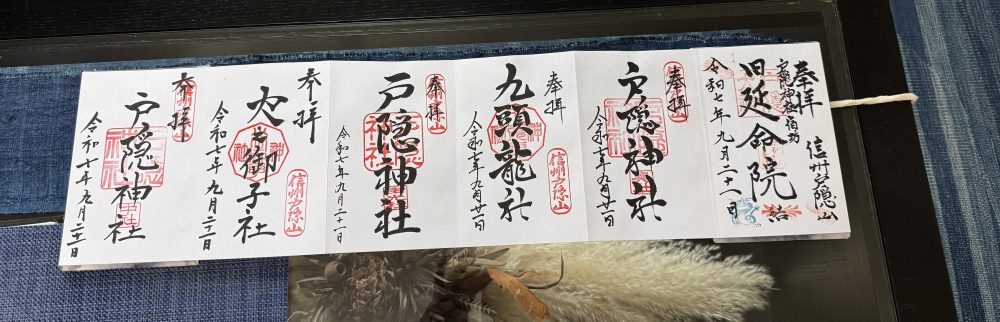 奉拝
信州戸隠山
戸隠神社宿坊
旧延命院
令和七年九月二十一日
奉拝
信州戸隠山
戸隠神社
令和七年九月廿一日
奉拝
九頭龍社
信州戸隠山
令和七年九月廿一日
奉拝
信州戸隠山
戸隠神社
令和七年九月二十一日
奉拝
火之御子社
信州戸隠山
令和七年九月二十一日
奉拝
信州戸隠山
戸隠神社
令和七年九月二十一日